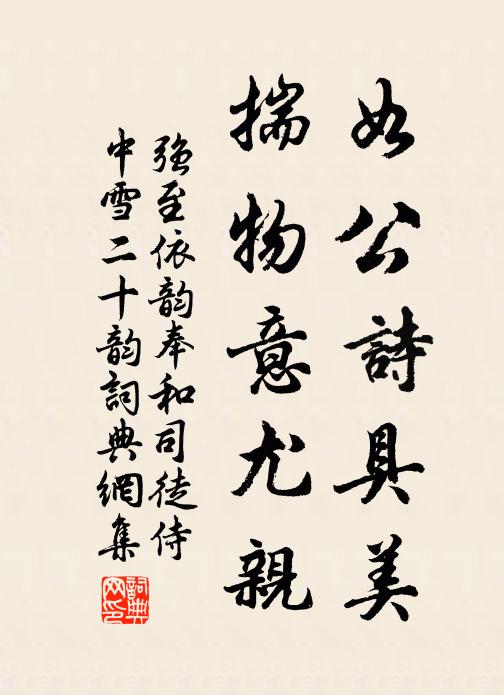 如公詩具美
揣物意尤親
強至依韵奉和司徒侍
中雪二十韵詞典網集
詞典網印